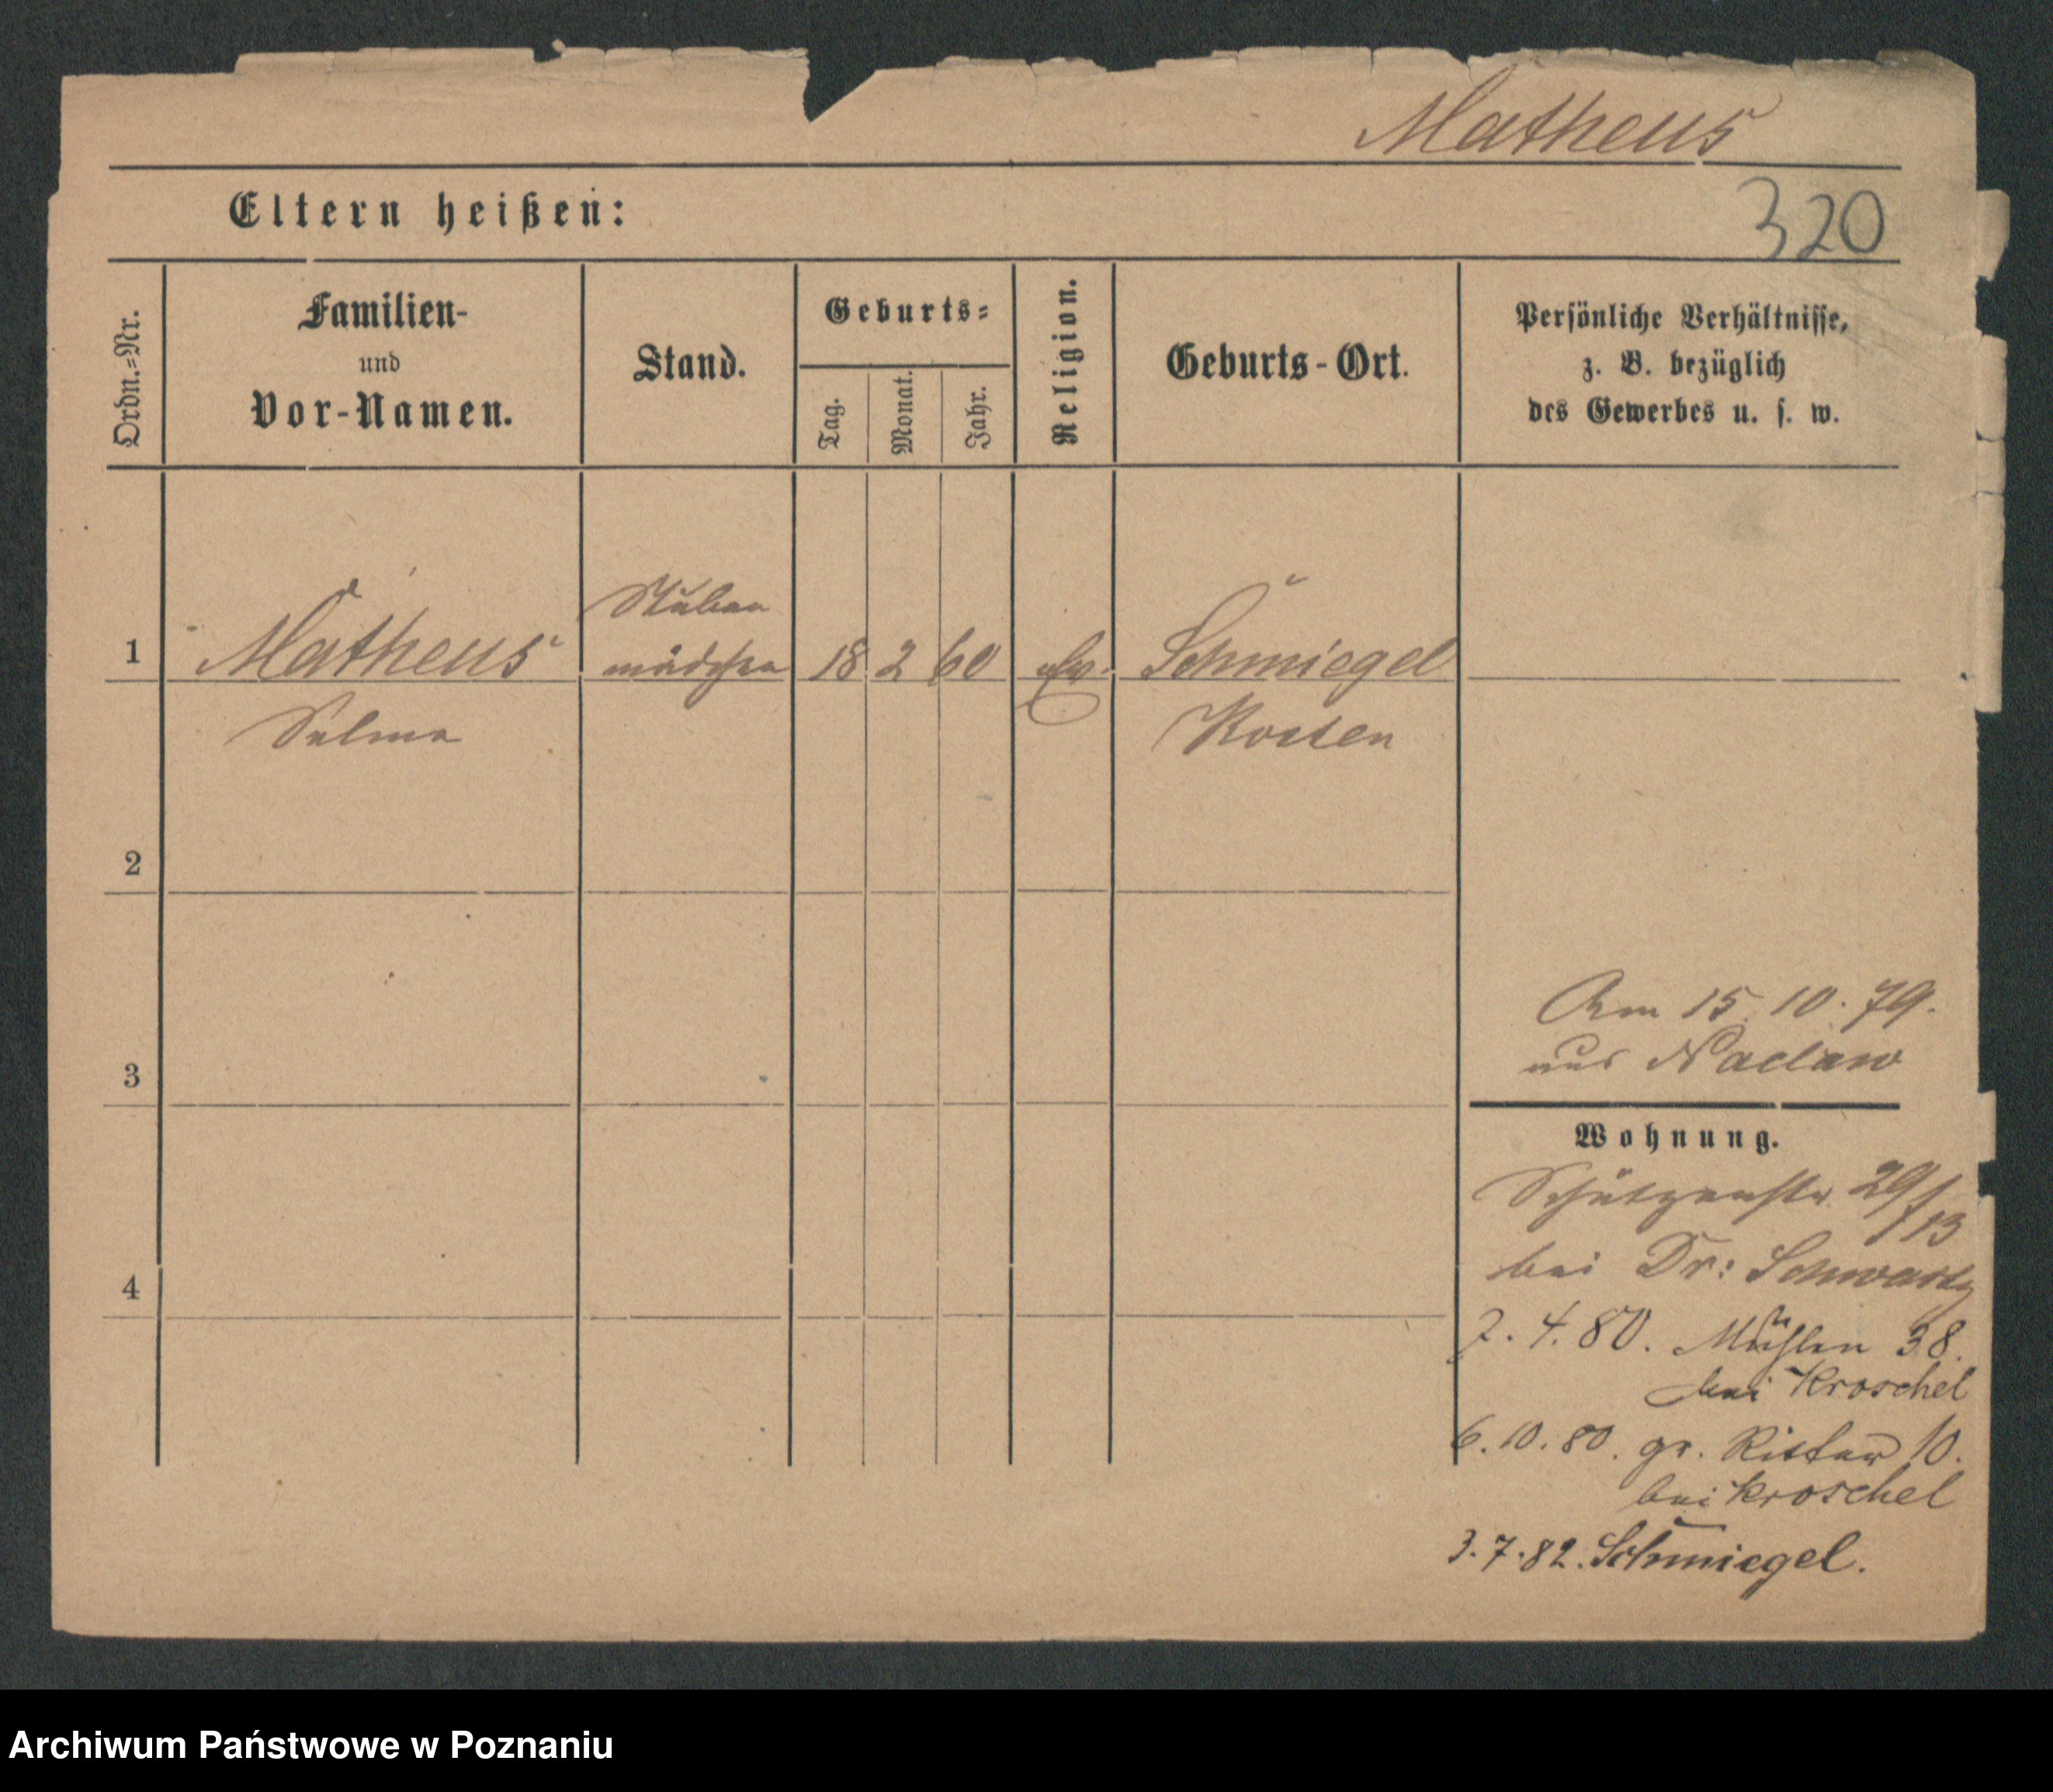 Matheus
320
Eltern heißen:
Ordn.-Nr.
Familien-
und
Vor-Namen.
Stand.
Geburts-
Tag.
Monat.
Jahr.
Religion.
Geburts-Ort.
Persönliche Verhältnisse,
z. B. bezüglich
des Gewerbes u. s. w.
1
Matheus
Selma
Stuben
mädchen
18 2 60
ev.
Schmiegel
Kosten
2
3
4
Am 15. 10. 79.
aus Naclaw
Wohnung.
Schützenstr. 29/13
bei Dr: Schwartz
2. 4. 80. Mühlen 38.
bei Kroschel
6. 10. 80. gr. Ritter 10.
bei Kroschel
3. 7. 82. Schmiegel.
Archiwum Państwowe w Poznaniu